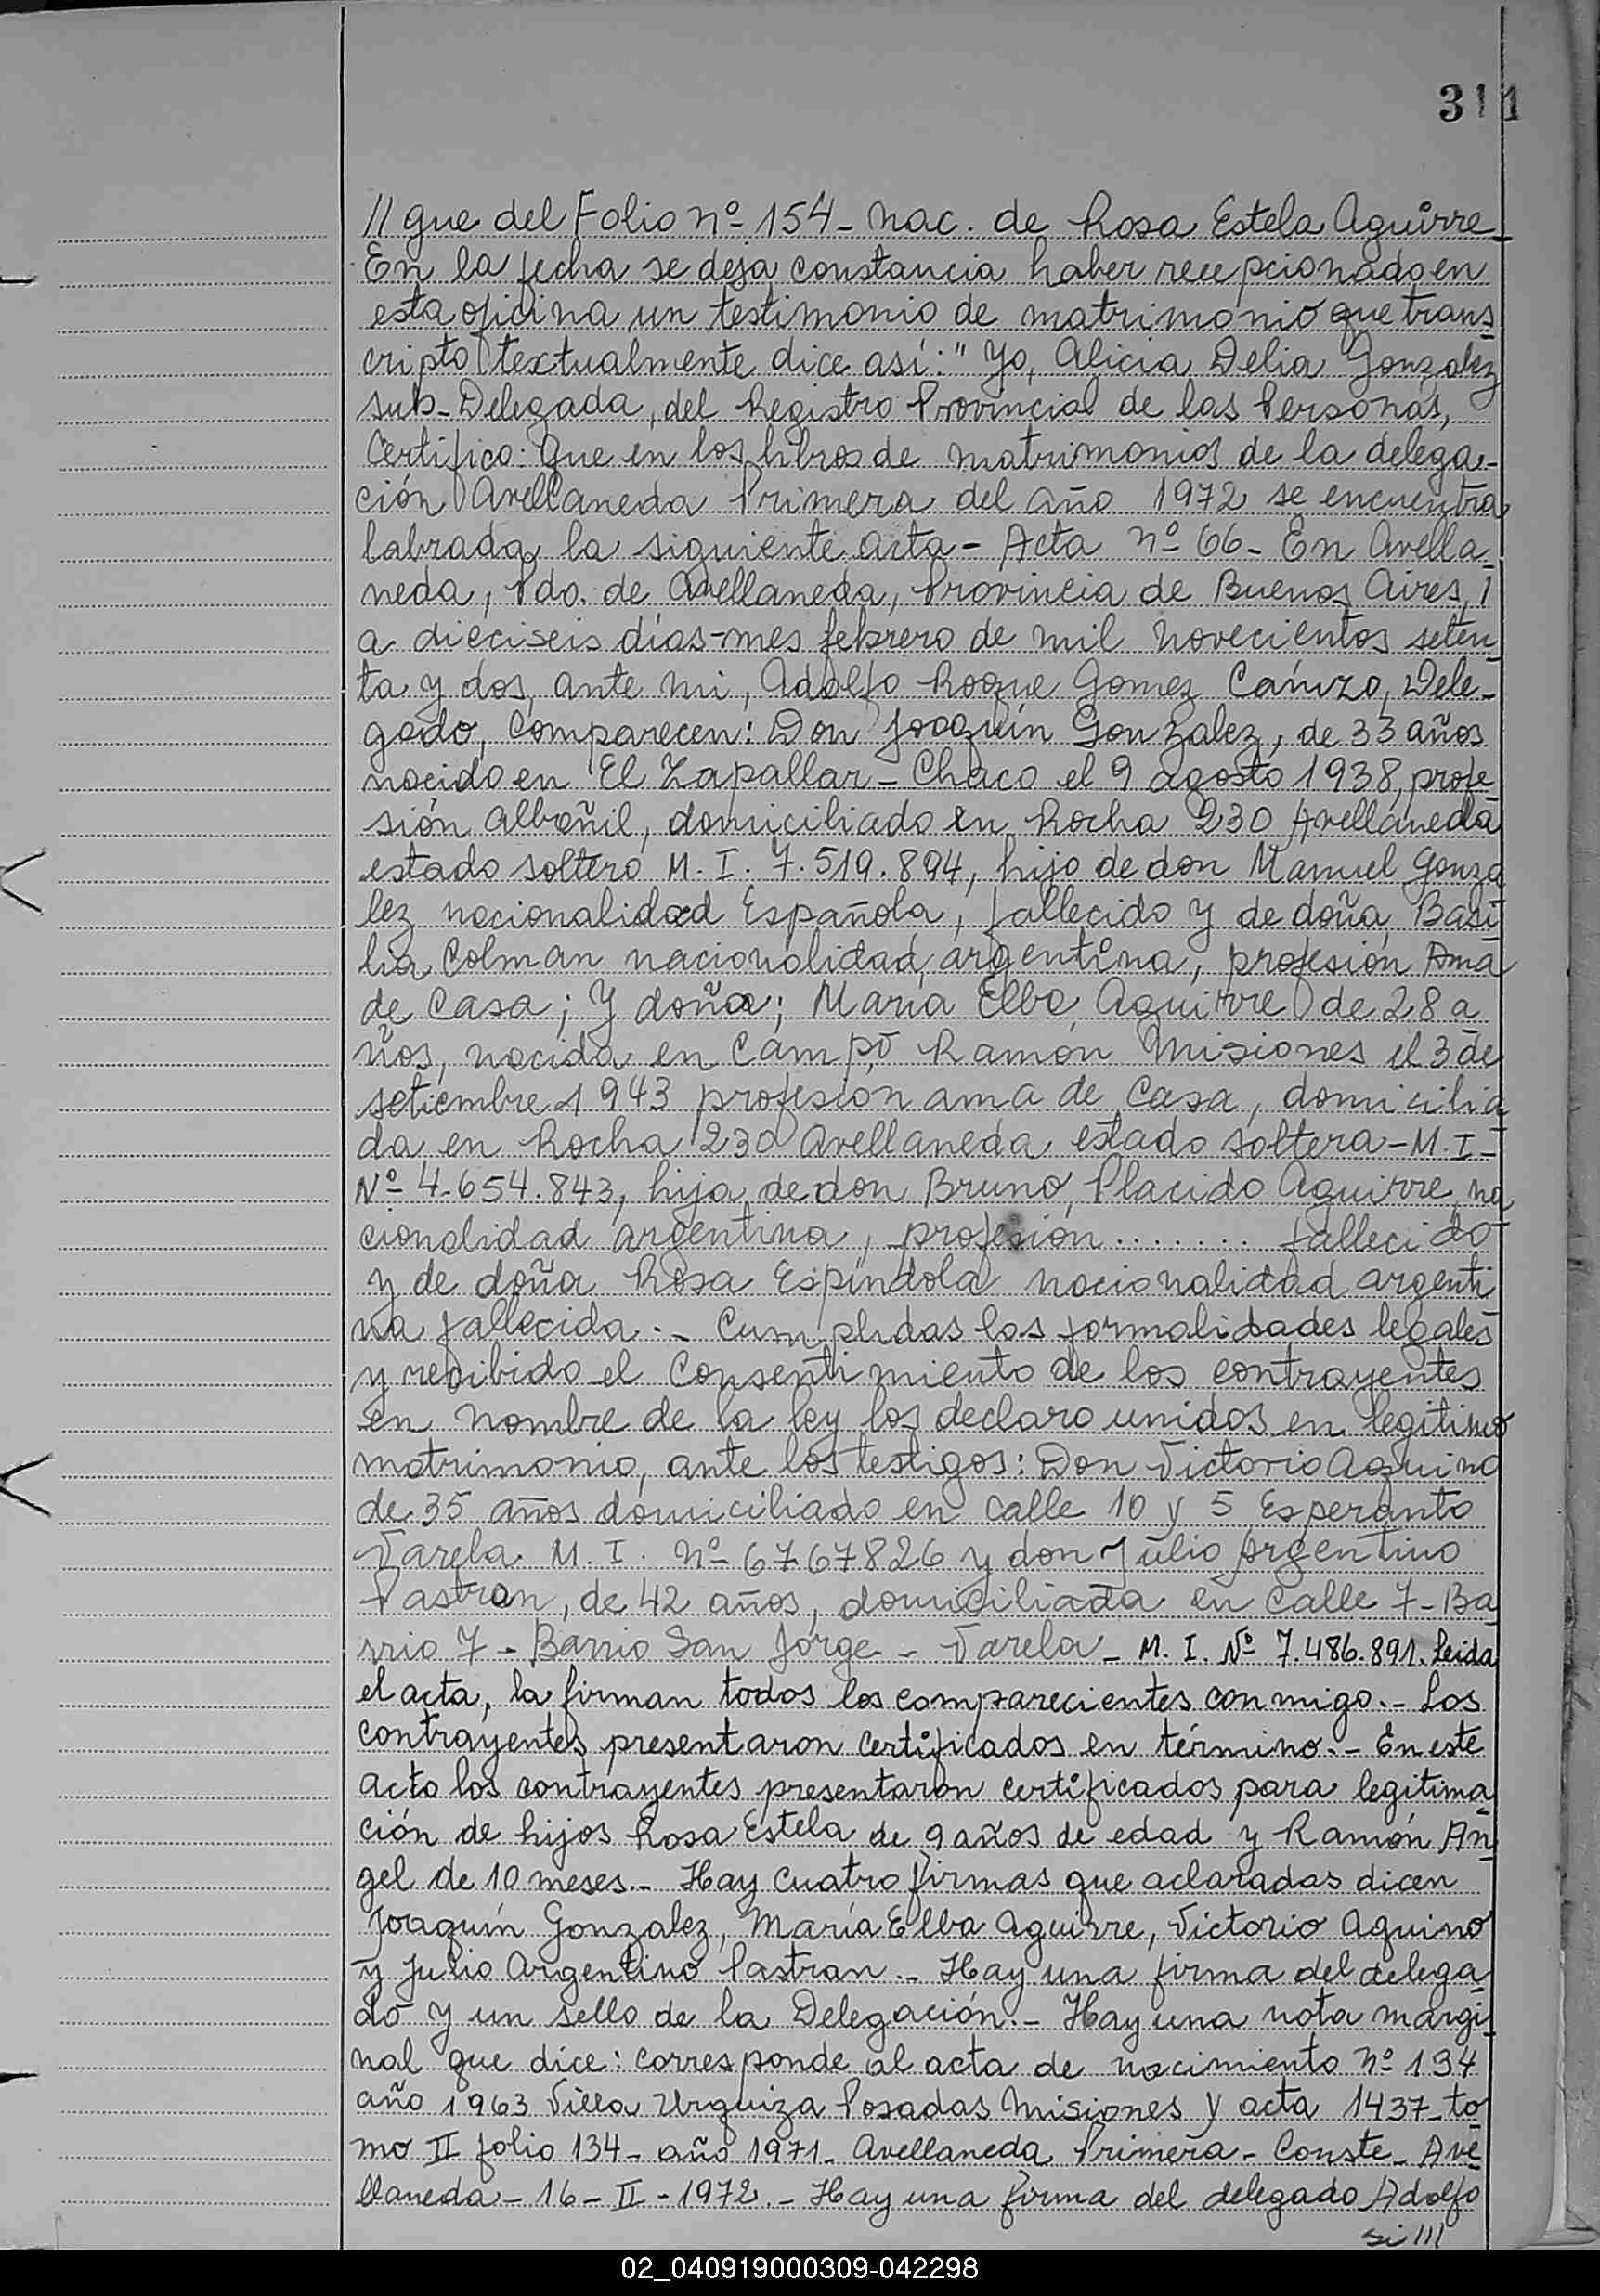 311
// gue del Folio nº 154 - Nac. de Rosa Estela Aguirre
En la fecha se deja constancia haber recepcionado en
esta oficina un testimonio de matrimonio que trans
cripto textualmente dice así: " Yo, Alicia Delia Gonzalez
sub-Delegada, del Registro Provincial de las Personas,
Certifico: Que en los libros de matrimonios de la delega-
ción Avellaneda Primera del año 1972 se encuentra
labrada la siguiente acta - Acta nº 66 - En Avella
neda, Pdo. de Avellaneda, Provincia de Buenos Aires, /
a dieciseis días-mes febrero de mil novecientos seten
ta y dos, ante mi, Adolfo Roque Gomez, Dele-
gado, Comparecen: Don Joaquín Gonzalez, de 33 años
nacido en El Zapallar - Chaco el 9 agosto 1938, profe
sión albañil, domiciliado en Rocha 230 Avellaneda
estado soltero M. I. 7.519.894, hijo de don Manuel Gonza
lez nacionalidad Española, fallecido y de doña Basi
lia Colman nacionalidad argentina, profesión Ama
de Casa; Y doña; María Elba Aguirre de 28 a
ños, nacida en Campo Ramon Misiones el 3 de
setiembre 1943 profesion ama de Casa, domicilia
da en Rocha 230 Avellaneda estado soltera - M. I -
Nº 4.654.843, hija de don Bruno Placido Aguirre, na
cionalidad argentina, profesión ....... fallecido
y de doña Rosa Espíndola nacionalidad argenti
na fallecida. - Cumplidas las formalidades legales
y recibido el Consentimiento de los contrayentes
en nombre de la ley los declaro unidos en legitimo
matrimonio, ante los testigos: Don Victorio Aquino
de 35 años domiciliado en calle 10 y 5 Esperanto
Varela M. I. nº 6767826 y don Julio Argentino
Pastran, de 42 años, domiciliada en Calle 7 - Ba
rrio 7 - Barrio San Jorge - Varela - M. I. Nº 7.486.891. Leida
el acta, la firman todos los comparecientes conmigo. - Los
contrayentes presentaron certificados en término. - En este
acto los contrayentes presentaron certificados para legitima
ción de hijos Rosa Estela de 9 años de edad y Ramón An
gel de 10 meses. - Hay cuatro firmas que aclaradas dicen
Joaquín Gonzalez, María Elba Aguirre, Victorio Aquino
y Julio Argentino Pastran. - Hay una firma del delega
do y un sello de la Delegación. - Hay una nota margi
nal que dice: corresponde al acta de nacimiento nº 134
año 1963 Villa Urquiza Posadas Misiones y acta 1437 - to
mo II folio 134 - año 1971 - Avellaneda Primera - Conste - Ave
llaneda - 16 - II - 1972. - Hay una firma del delegado Adolfo
si ///
02_040919000309-042298